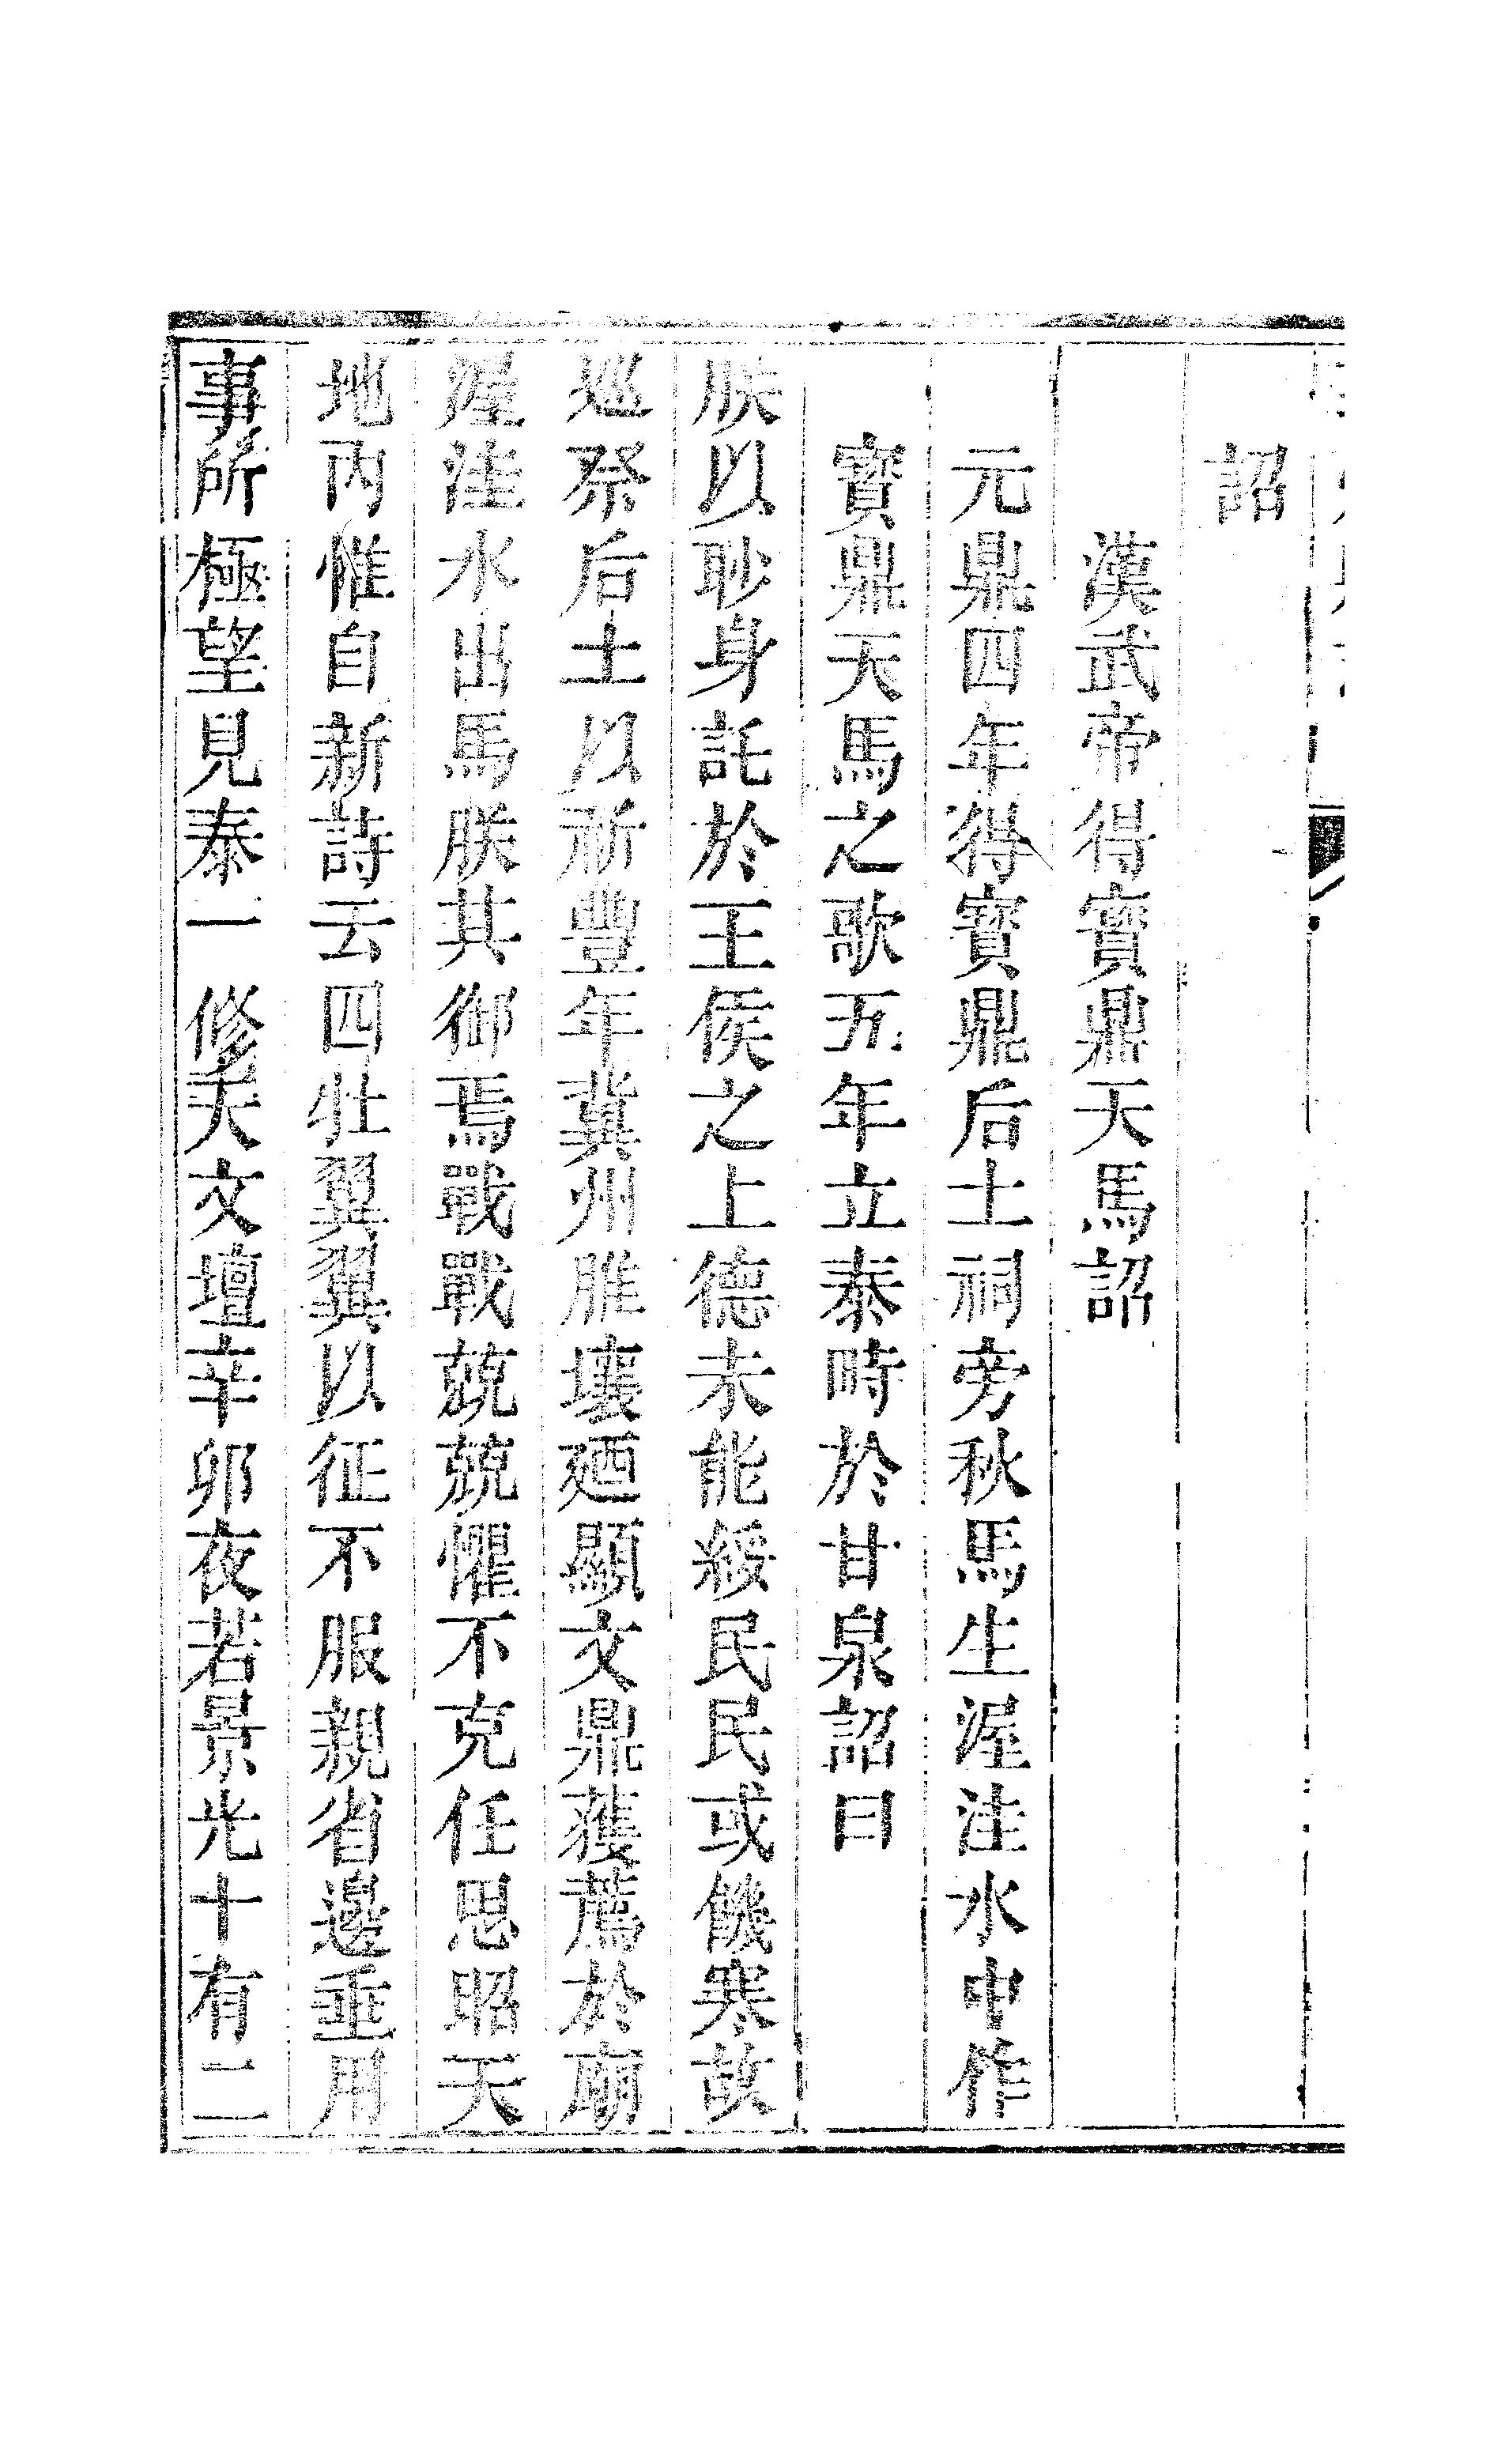 詔
漢武帝得寳鼎天馬詔
元鼎四年得寳鼎后土祠旁秋馬生渥洼水中作
寳鼎天馬之歌五年立泰畤於甘泉詔曰
朕以眇身託於王侯之上德未能綏民民或饑寒故
巡祭后土以祈豐年冀州脽壤廼顯文鼎獲薦於廟
渥洼水出馬朕其御焉戰戰兢兢懼不克任思昭天
地内惟自新詩云四牡翼翼以征不服親省邊垂用
事所極望見泰一修天文壇辛卯夜若景光十有二